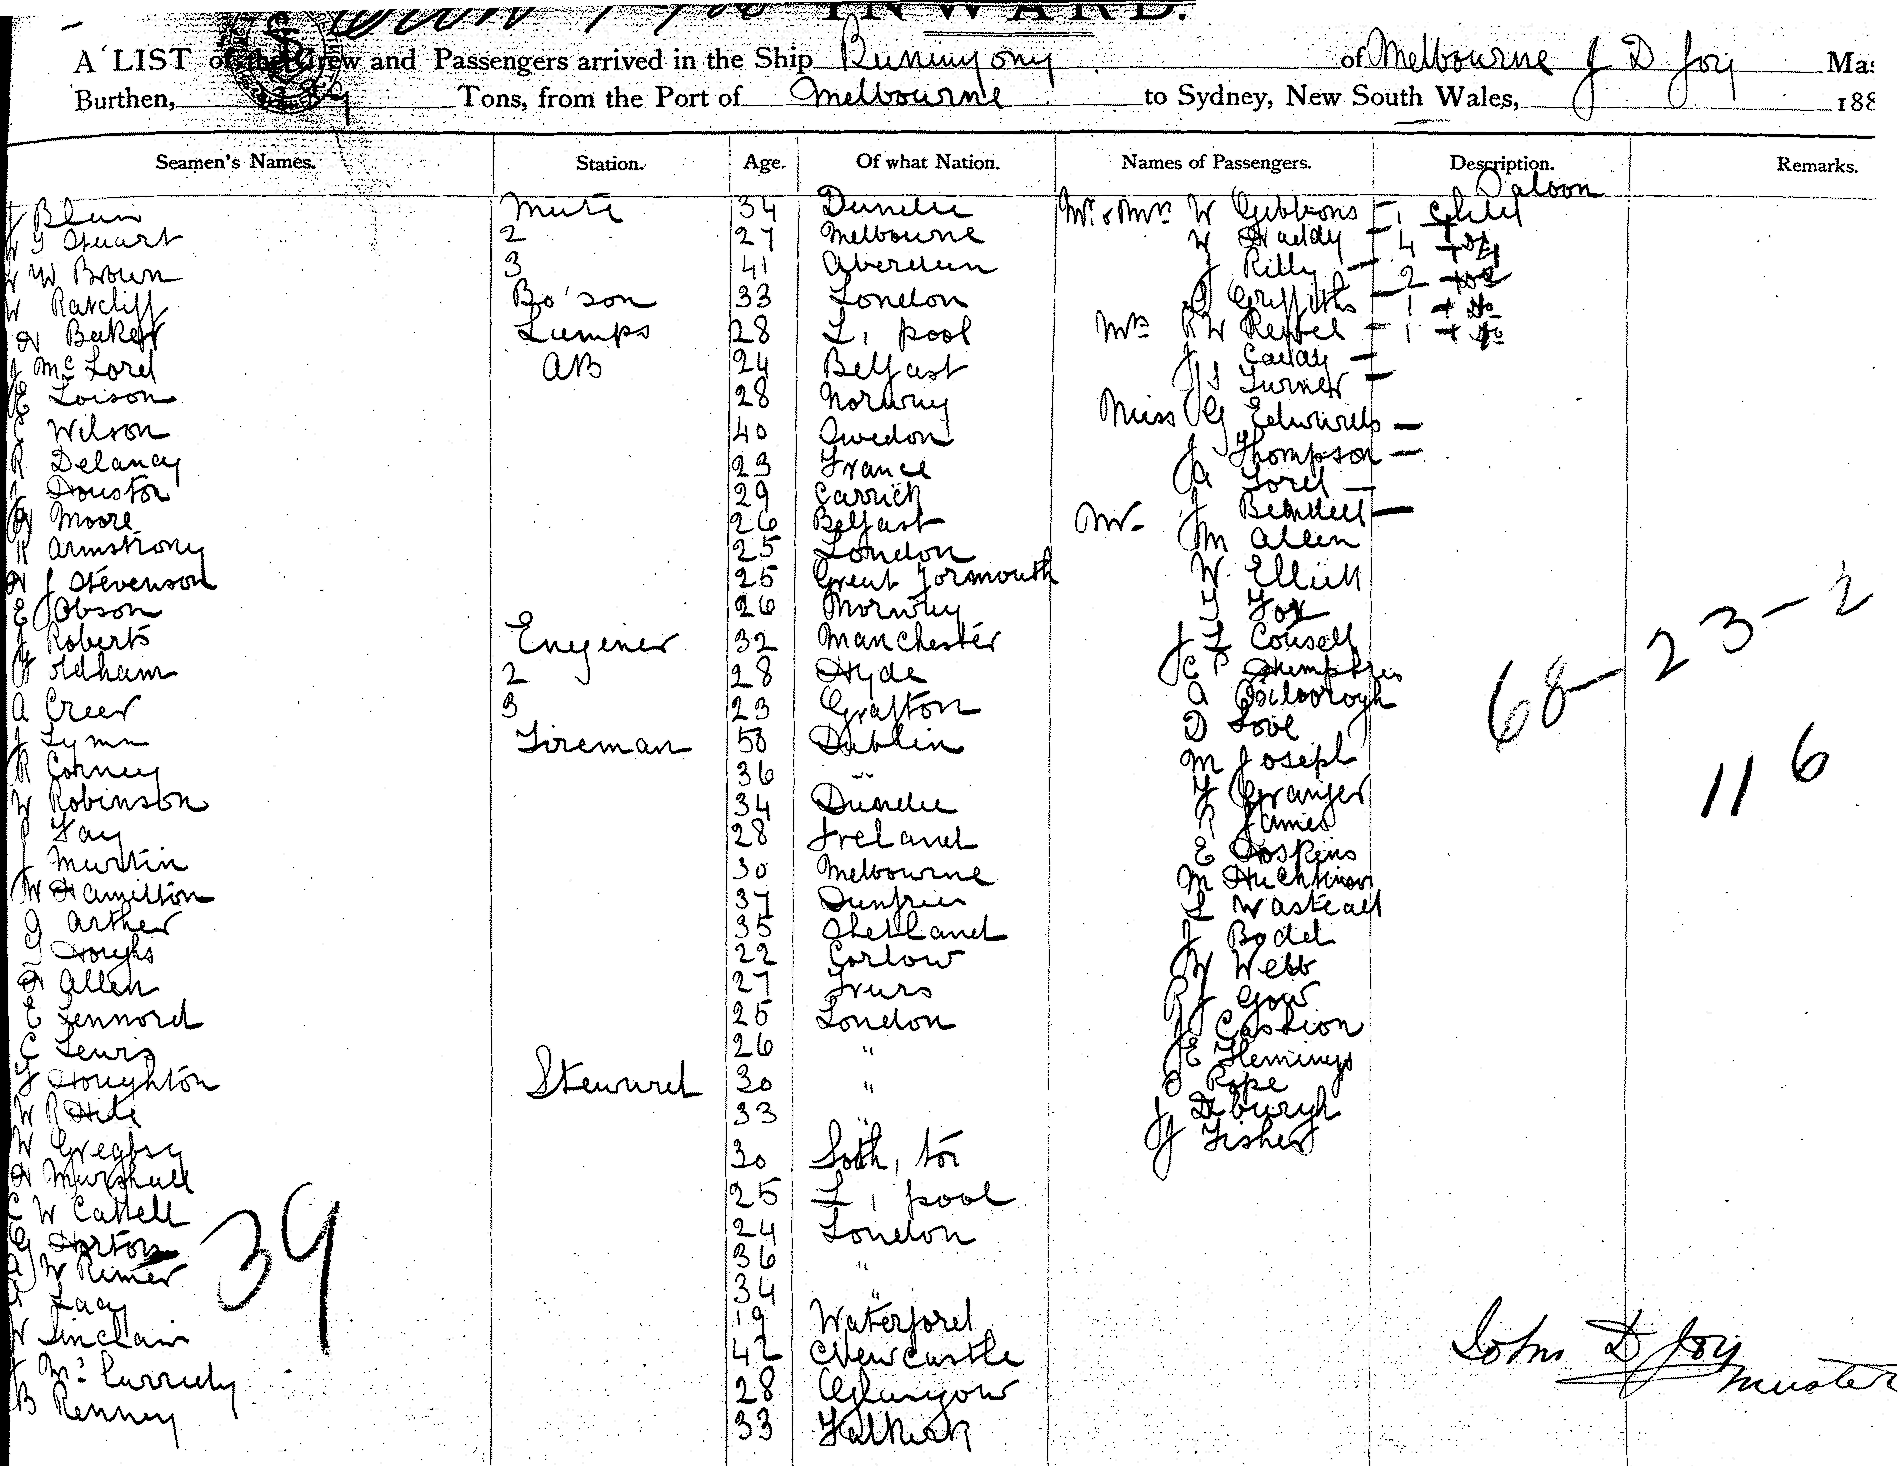 INWARD.
A LIST of the Crew and Passengers arrived in the Ship Buninyong of Melbourne J D Joy Mas
Burthen, Tons, from the Port of Melbourne to Sydney, New South Wales, 188
Seamen's Names. Station. Age. Of what Nation. Names of Passengers. Description. Remarks.
Saloon
J Blair Mate 34 Dundee Mr & Mrs W Gibbons - 1 child
G Stuart 2 27 Melbourne W Haddy - 4 + Do
W Brown 3 41 Aberdeen J Rilly - 2 Do
W Ratcliff Bo'son 33 London Griffiths - 1 + Do
H Baker Lamps 28 L, pool Mrs R W Rewel - 1 + Do
J McLord AB 24 Belfast J Canday -
E Loison 28 Norway J S Turner -
C Wilson 40 Sweden Miss G Edwards -
R Delaney 23 France J Thompson -
Houston 29 Carrick A Lord -
Moore 26 Belfast Mr J Bendell -
R Armstrong 25 London M Allen
H J Stevenson 25 Great Yormouth W. Elliott
E Jobson 26 Norway T Fox
J Roberts Enginer 32 Manchester J L Cousell
Oldham 2 28 Hyde C P Humphries
A Creer 3 23 Grafton A
J Lynn Fireman 58 Dublin D Love
R Corney 36 " M Joseph
W Robinson 34 Dundee F Granger
P Fay 28 Ireland R James
J Martin 30 Melbourne E Hoskins
W Hamilton 37 Dumfries M Hutchinson
G Arther 35 Shetland L Wasteall
G Houghs 22 Corlow J Bodel
H Allen 27 Trurs W Webb
E Lennord 25 London R J Gow
C Lewis 26 " J Caslion
F Houghton Steward 30 " E Flemings
W R Hile 33 " Pope
W Gregbsy 30 Soth, ton J Deburgh
H Marshall 25 L, pool J Fisher
C W Cattell 24 London
G Horton 36 "
W Rimer 34 "
Lacy 19 Waterford
W Sinclair 42 Newcastle
McCurrudy 28 Glasgow
B Renney 33 Falkirk
39
68 - 23 - 2
116
John D Joy
Master